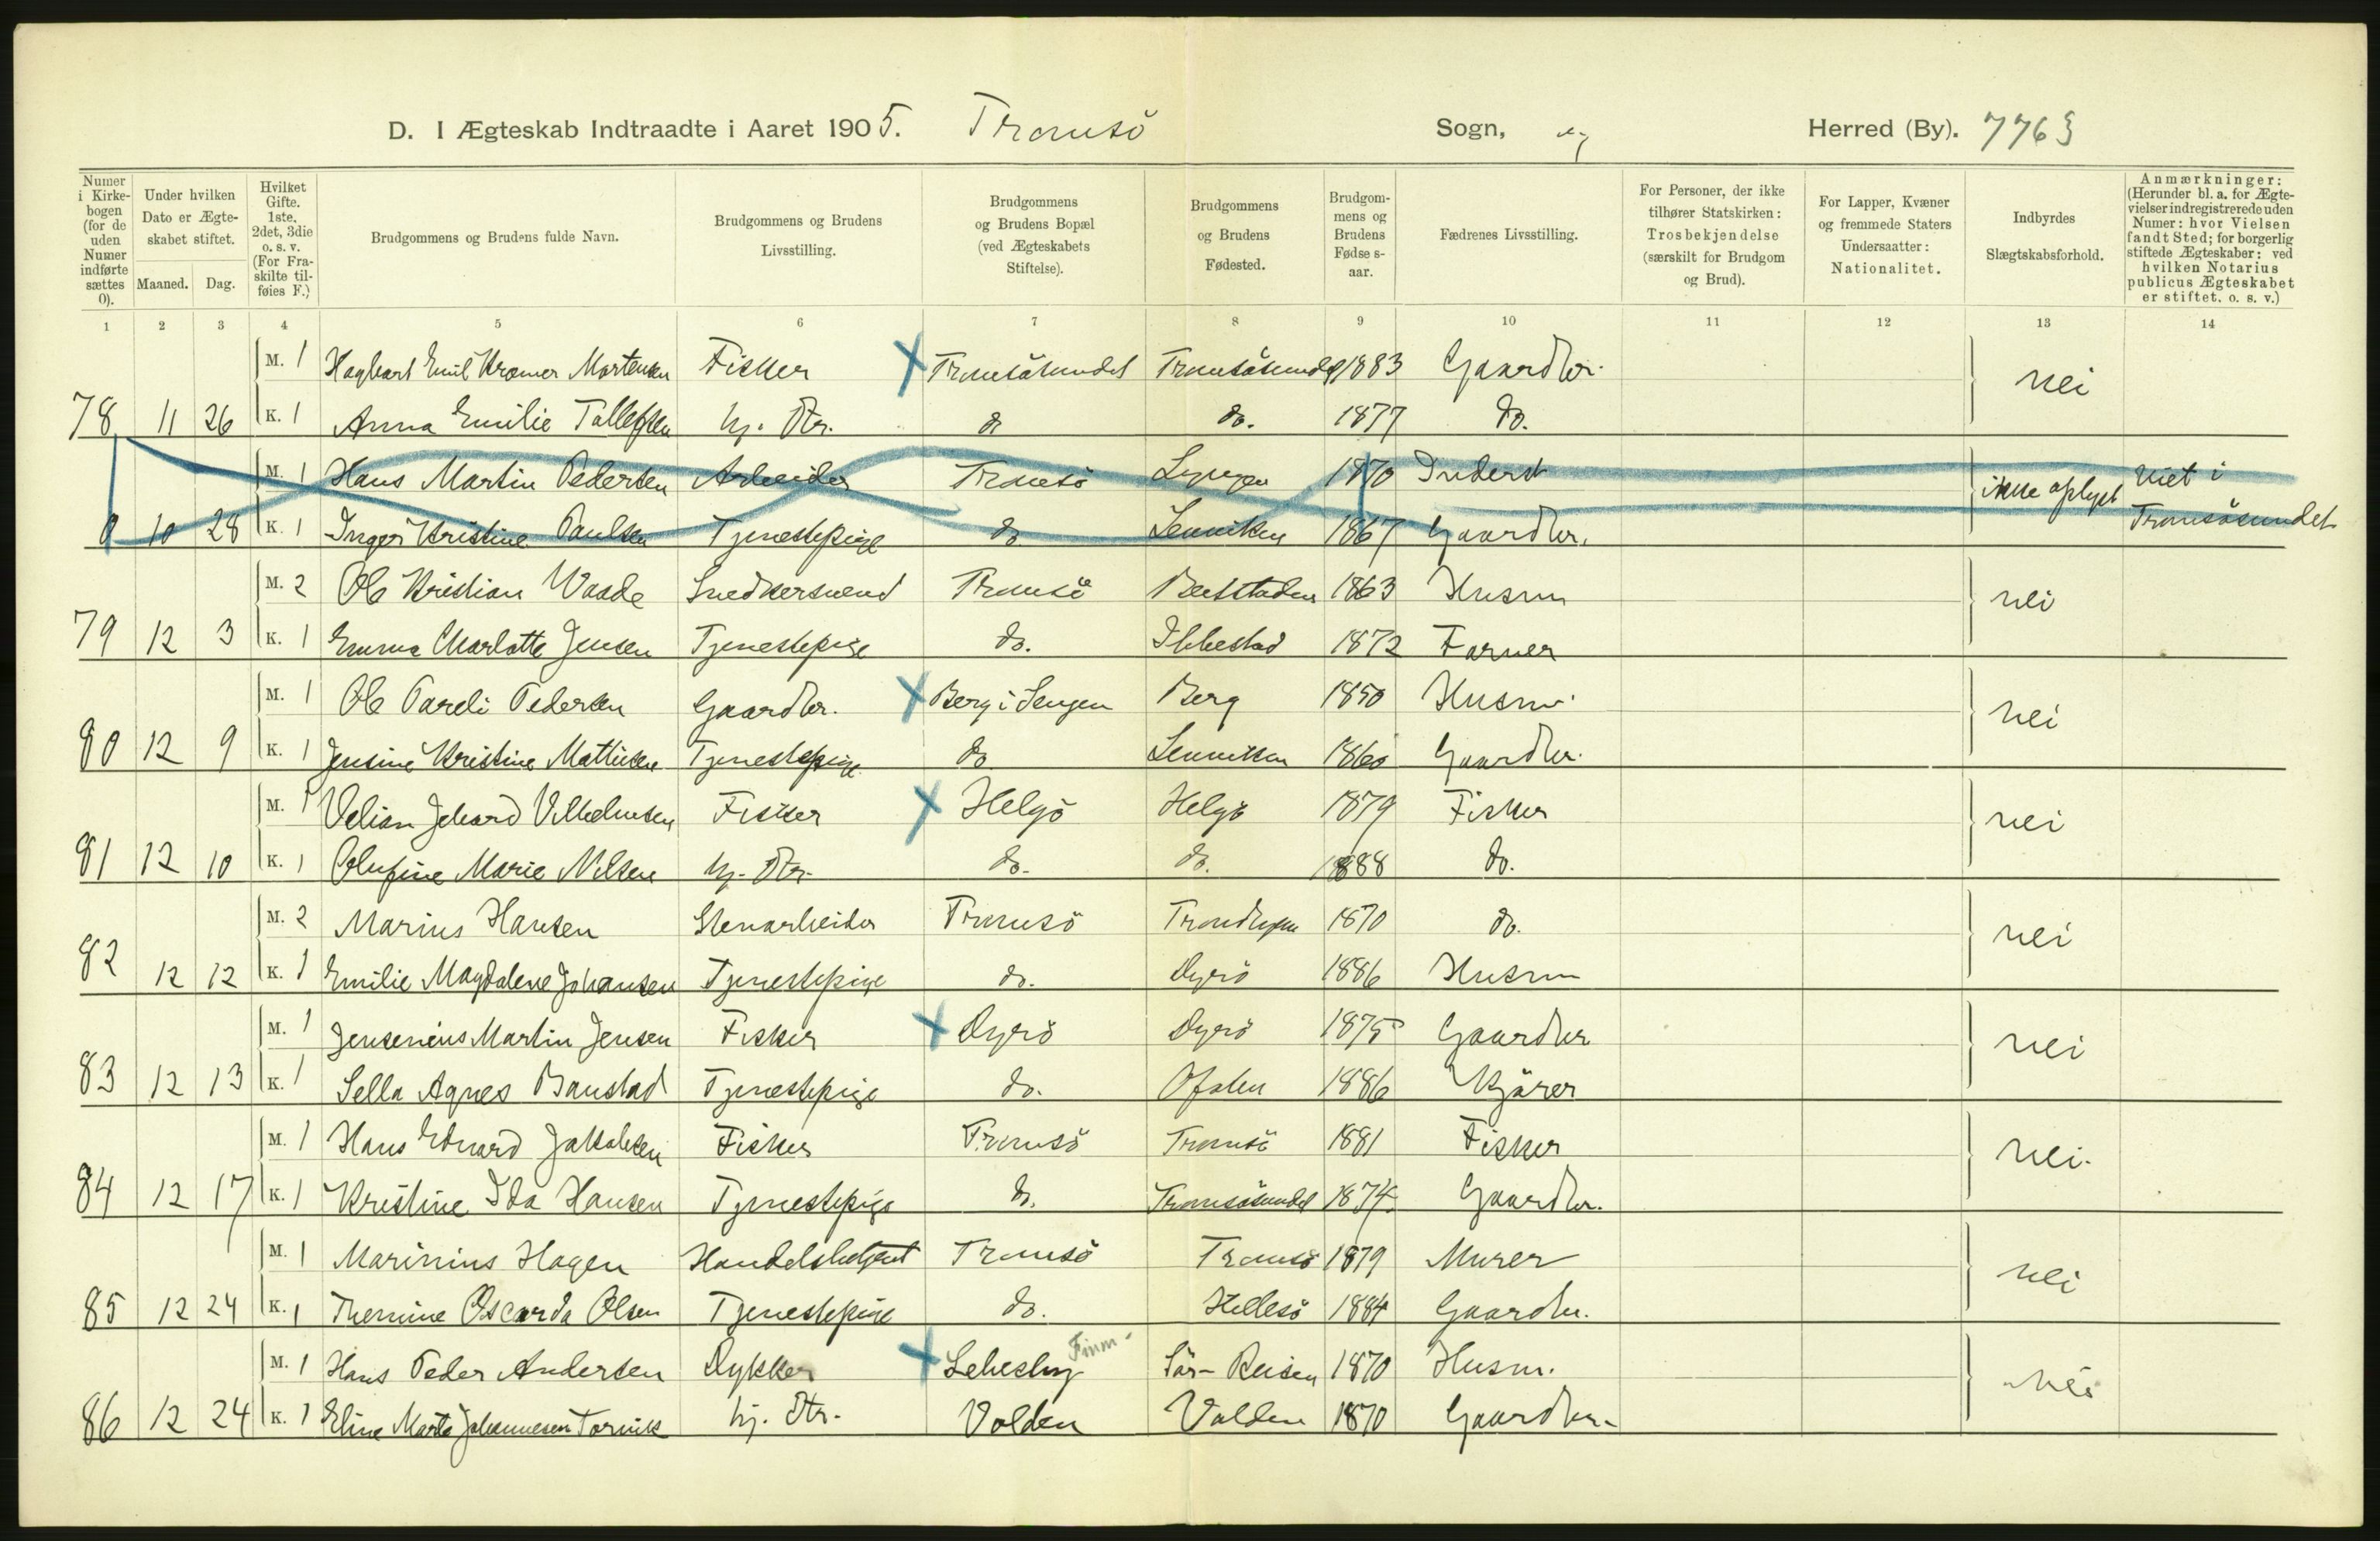 D. I Ægteskab Indtraadte i Aaret 1905. Tromsö Sogn, og Herred (By). 776
Numer i Kirkebogen (for de uden Numer indførte sættes 0).
Under hvilken Dato er Ægteskabet stiftet.
Maaned. Dag.
Hvilket Gifte. 1ste, 2det, 3die o. s. v. (For Fraskilte tilføies F.)
Brudgommens og Brudens fulde Navn.
Brudgommens og Brudens Livsstilling.
Brudgommens og Brudens Bopæl (ved Ægteskabets Stiftelse).
Brudgommens og Brudens Fødested.
Brudgommens og Brudens Fødselsaar.
Fædrenes Livsstilling.
For Personer, der ikke tilhører Statskirken: Trosbekjendelse (særskilt for Brudgom og Brud).
For Lapper, Kvæner og fremmede Staters Undersaatter: Nationalitet.
Indbyrdes Slægtskabsforhold.
Anmærkninger: (Herunder bl. a. for Ægtevielser indregistrerede uden Numer: hvor Vielsen fandt Sted; for borgerlig stiftede Ægteskaber: ved hvilken Notarius publicus Ægteskabet er stiftet. o. s. v.)
1 2 3 4 5 6 7 8 9 10 11 12 13 14
M. 1 Hagbart Emil Kromer Mortensen Fisker X Tromsösundet Tromsösundet 1883 Gaardbr. nei
78 11 26 K. 1 Anna Emilie Tollefsen hj. Dtr. do do. 1877 do.
M. 1 Hans Martin Pedersen Arbeider Tromsö Lyngen 1870 Inderst ikke oplyst Viet i
0 10 28 K. 1 Inger Kristine Paulsen Tjenestepige do Lenviken 1867 Gaardbr. Tromsösundet
M. 2 Ole Kristian Waade Snedkersvend Tromsö 1863 Husm nei
79 12 3 K. 1 Emma Charlotte Jensen Tjenestepige do. Ibbestad 1872 Farver
M. 1 Ole Pareli Pedersen Gaardbr. X Berg i Senjen Berg 1850 Husm. nei
80 12 9 K. 1 Jensine Kristine Mathisen Tjenestepige do Lenviken 1860 Gaardbr.
M. 1 Vilhelmsen Fisker X Helgö Helgö 1879 Fisker nei
81 12 10 K. 1 Olufine Marie Nilsen hj. Dtr. do. do. 1888 do.
M. 2 Marius Hansen Stenarbeider Tromsö Trondhjem 1870 do. nei
82 12 12 K. 1 Emilie Magdalene Johansen Tjenestepige do. Dyrö 1886 Husm
M. 1 Jensenius Martin Jensen Fisker X Dyrö Dyrö 1875 Gaardbr nei
83 12 13 K. 1 Sella Agnes Banstad Tjenestepige do. Ofoten 1886 Kjörer
M. 1 Hans Edvard Jakobsen Fisker Tromsö Tromsö 1881 Fisker nei.
84 12 17 K. 1 Kristine Ida Hansen Tjenestepige do. Tromsösundet 1874 Gaardbr.
M. 1 Marinius Hagen Handelsbetjent Tromsö Tromsö 1879 Murer nei
85 12 24 K. 1 Oscarda Olsen Tjenestepige do. Hillesö 1884 Gaardbr.
M. 1 Hans Peder Andersen Dykker X Lebesby Finm- Sör-Reisen 1870 Husm. nei
86 12 24 K. 1 Eline Marta Johannesen Torvik hj. Dtr. Volden Volden 1870 Gaardbr.